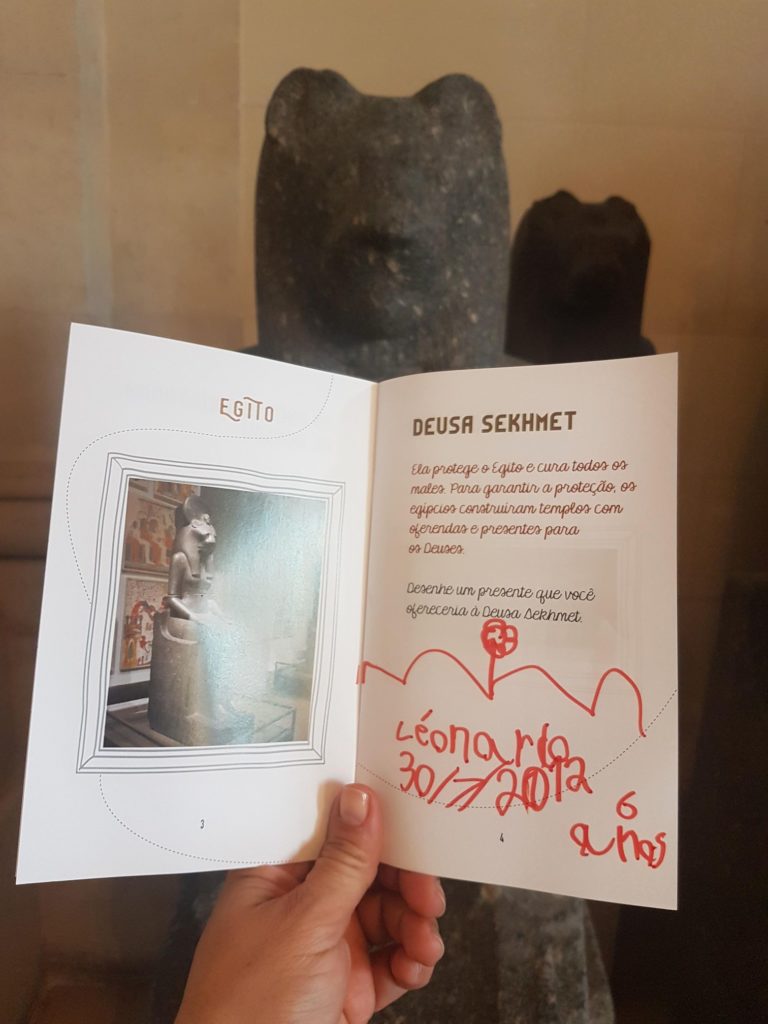 EGITO
3
DEUSA SEKHMET
Ela protege o Egito e cura todos os
males. Para garantir a proteção, os
egípcios construiram templos com
oferendas e presentes para
os Deuses.
Desenhe um presente que você
ofereceria à Deusa Sekhmet.
Léonardo
30/7/2012
6
anas
4